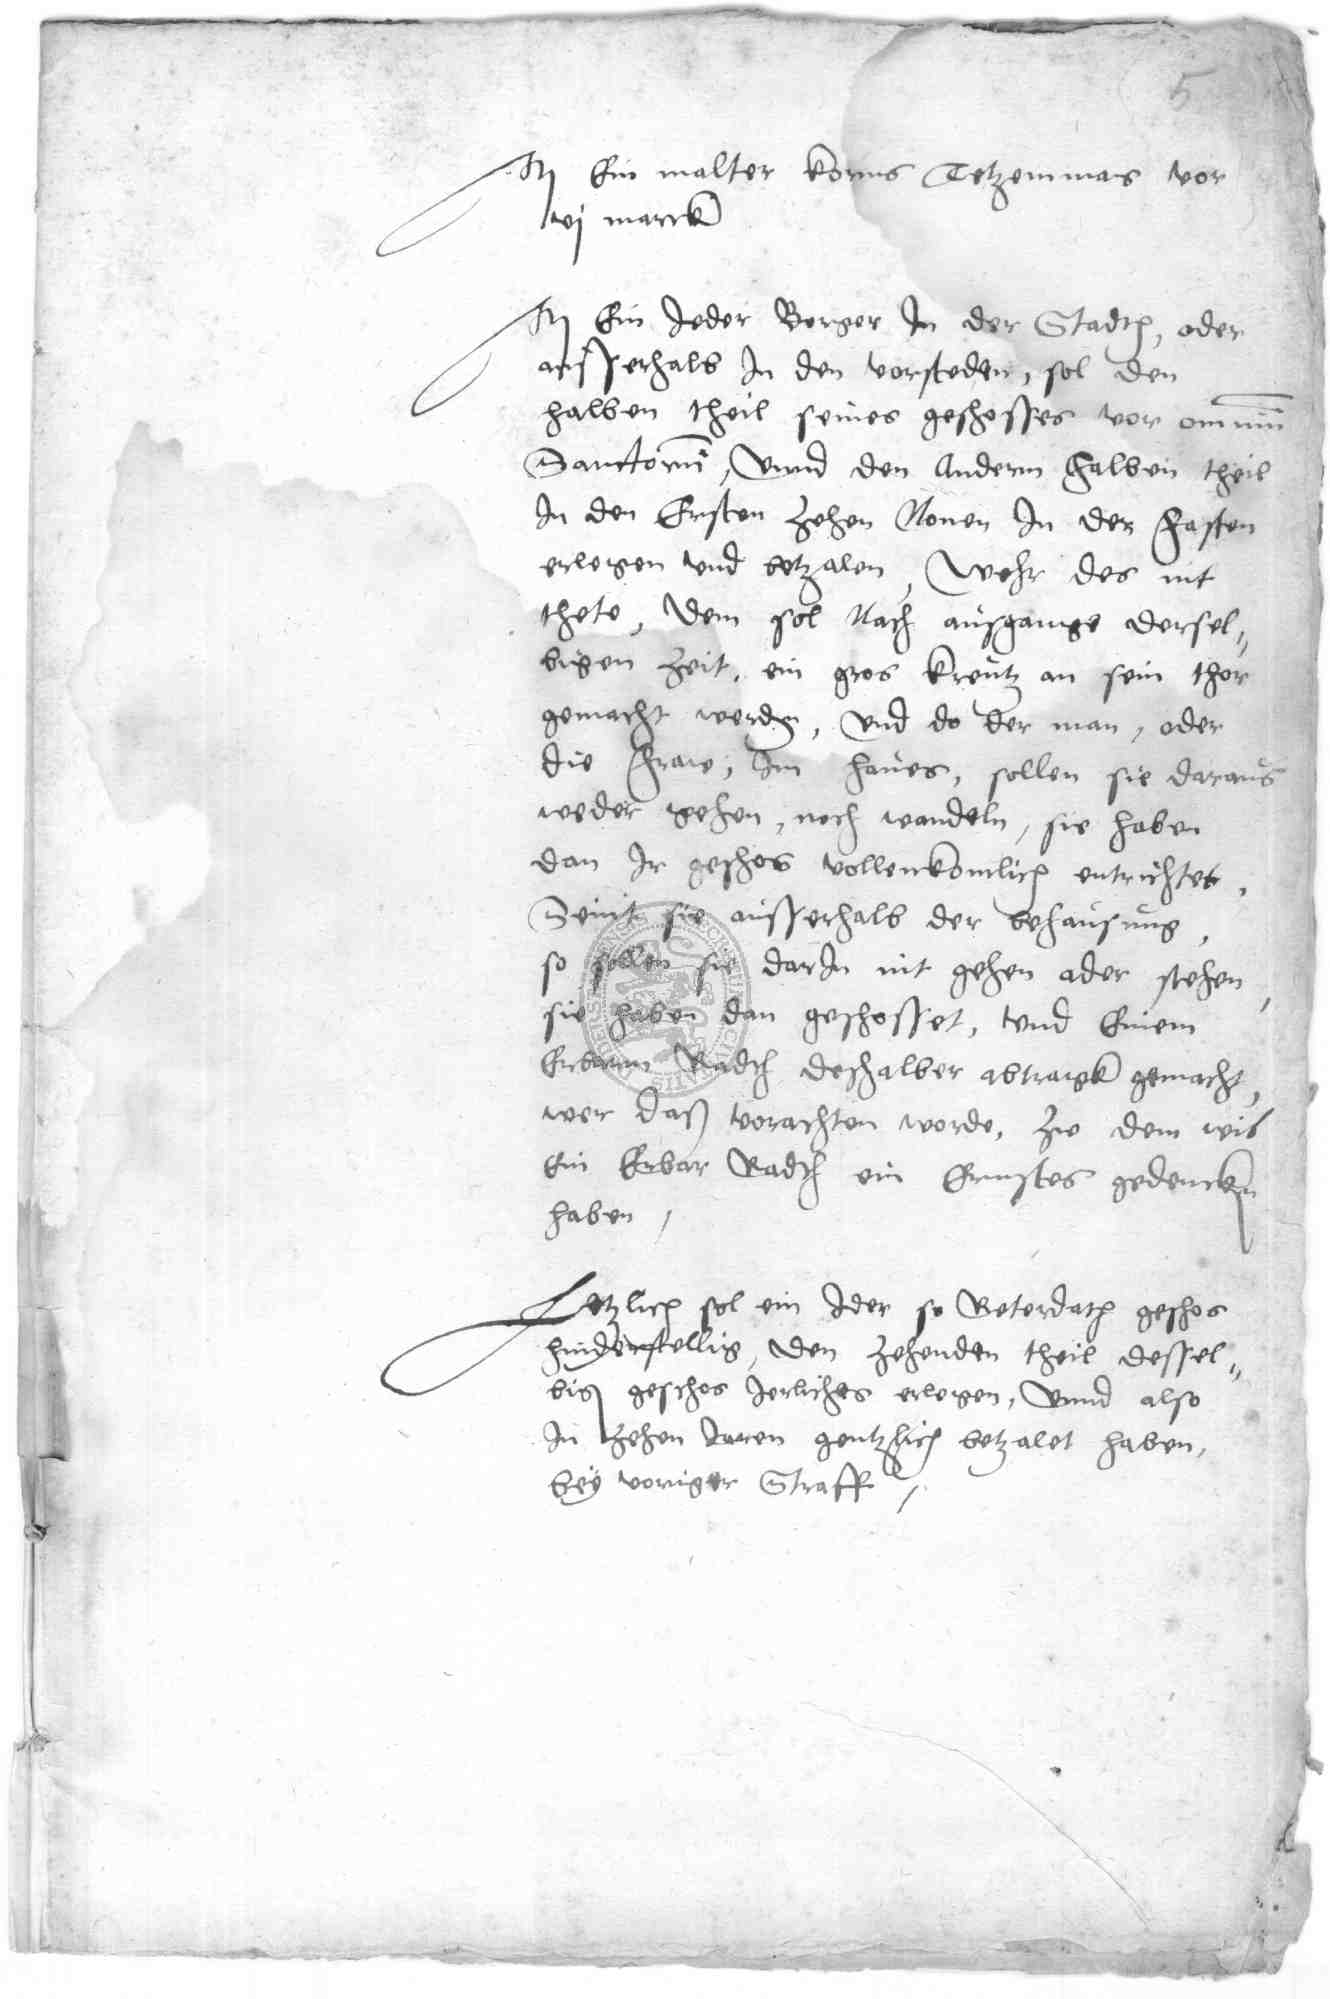 5
It Ein malter korns Tetzemmas vor
vj marck
It Ein Jeder Borger In der Stadth, oder
ausserhalb In den vorsteden, sol den
halben theil seines geschosses vor omnium
Sanctorum, Vnnd den Andernn halben theil
In den Ersten zehen Nonen In der fasten
erlegen vnd betzalen, Wehr des nit
thete, Dem sol Nach ausgange dersel„
bigen Zeit, ein gros kreutz an sein thor
gemacht werden, Vnd do der man, oder
die fraw, Im haues, sollen sie daraus
weder gehen, noch wandeln, sie haben
dan Ir geschos vollenkomlich entrichtet,
Seint sie ausserhalb der behausung,
so sollen sie darIn nit gehen ader stehen,
sie haben dan geschosset, vnd Einem
Erbarnn Radth deshalber abtragk gemacht,
wer daß vorachten worde, Zu dem wil
Ein Erbar Radth ein Ernstes gedencken
haben,
Letzlich sol ein Ider so Reterdath geschos
hinderstellig, den zehenden theil dessel„
big geschos Jerliches erlegen, Vnnd also
In zehen Jaren gentzlich betzalet haben,
bey voriger Straff,